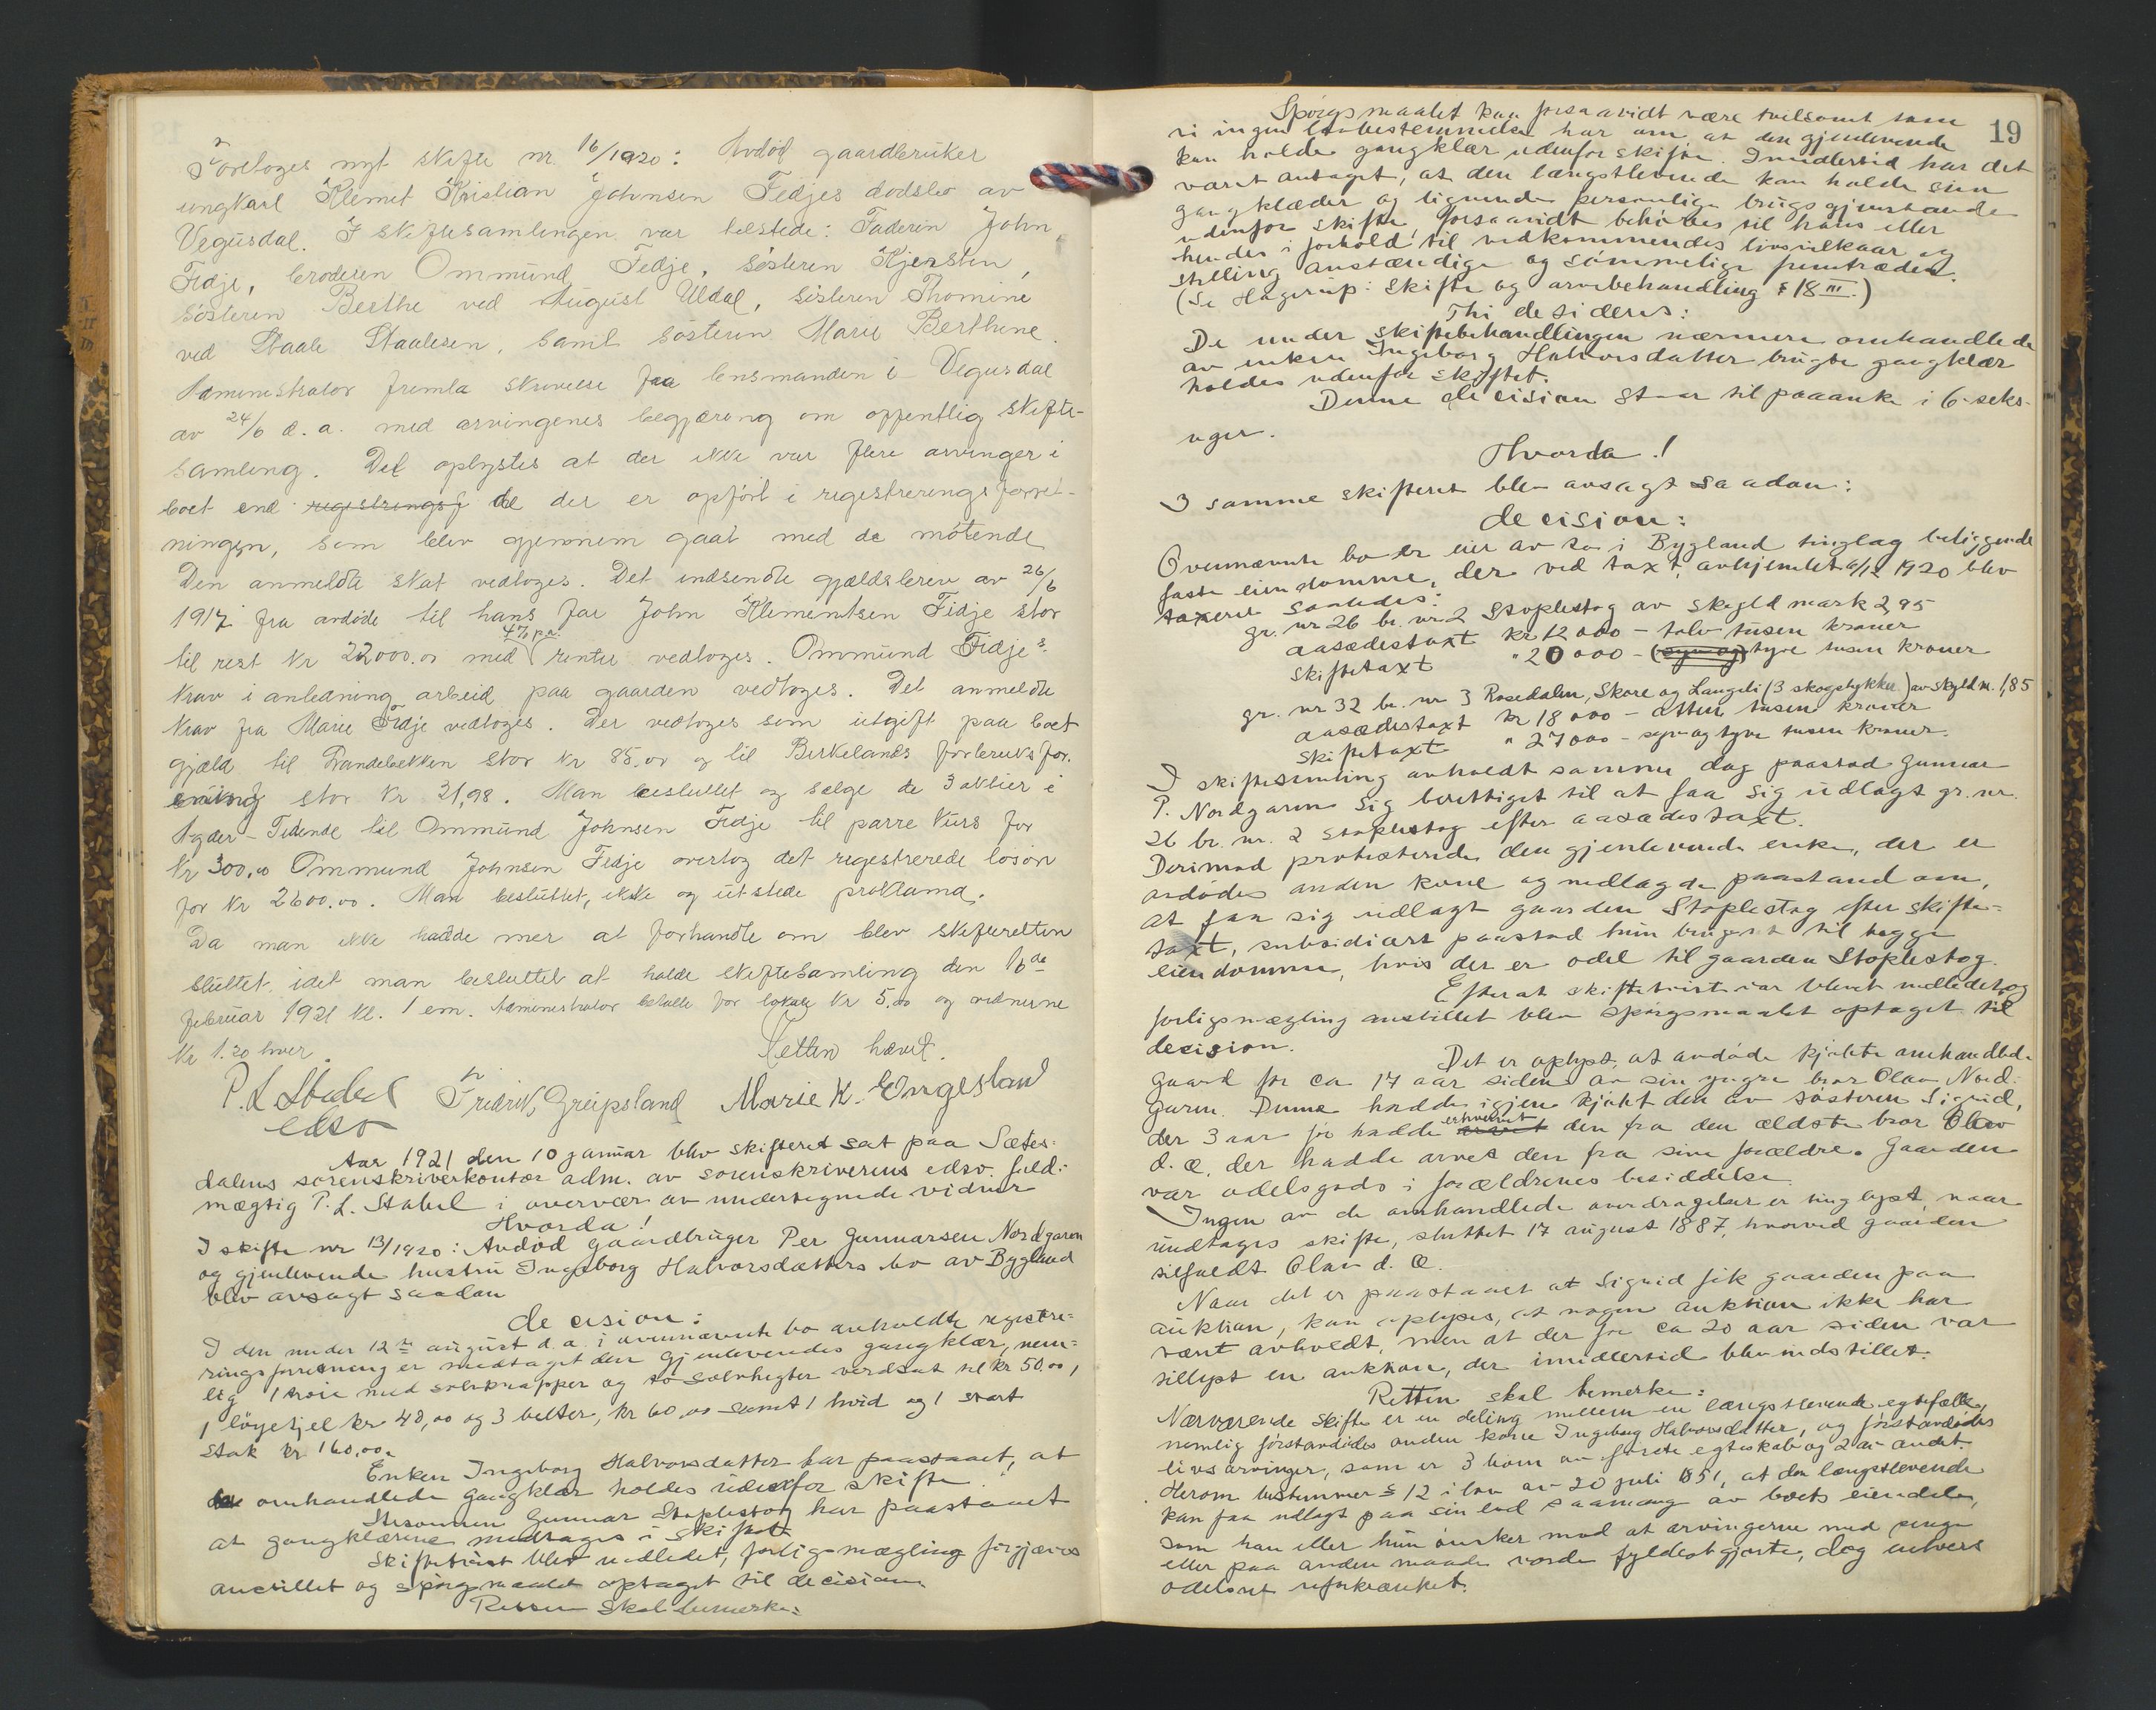 Foretoges nyt skifte nr. 16/1920: Avdød gaardbruker
ungkarl Klemet Kristian Johnsen Fidjes dødsbo av
Vegusdal. I skiftesamlingen var tilstede: Faderen John
Fidje, broderen Ommund Fidje, søsteren Kjersten,
søsteren Berthe ved August Uldal, søsteren Thomine
ved Staale Staalesen, samt søsteren Marie Berthine.
Administrator fremla skrivelse fra lensmanden i Vegusdal
av 24/6 d.a. med arvingenes begjæring om offentlig skifte-
samling. Det oplystes at der ikke var flere arvinger i
boet end de der er opført i registreringsforret-
ningen, som blev gjennem gaat med de møtende
Den anmeldte skat vedtoges. Det indsendte gjældsbrev av 26/6
1917 fra avdøde til hans far John Klementsen Fidje stor
til rest kr 22000.00 med 4% pa. renter vedtoges. Ommund Fidje's
krav i anledning arbeid paa gaarden vedtoges. Det anmeldte
krav fra Marie Fidje vedtoges. Der vedtoges som utgift paa boet
gjæld til Strandebekken stor kr 85.00 og til Birkelands forbruksfor.
ening stor kr 31,98. Man besluttet og sælge de 3 aktier i
Agder-Tidende til Ommund Johnsen Fidje til parre kurs for
kr 300,00 Ommund Johnsen Fidje overtog det registrerede løsøre
for kr 2600.00. Man besluttet, ikke og utstede proklama.
Da man ikke hadde mer at forhandle om blev skifteretten
sluttet, idet man besluttet at holde skiftesamling den 16de
februar 1921 kl. 1 em. Administrator betalte for lokale kr 5.00 og vidnerne
kr 1.20 hver. Retten hævet.
P. L. Stabel Fredrik Greipsland Marie K. Engesland
edsv
Aar 1921 den 10 januar blev skifteret sat paa Sætes-
dalens sorenskriverkontor adm. av sorenskriverens edsv. fuld-
mægtig P. L. Stabel i overvær av undertegnede vidner
Hvorda!
I skifte nr 13/1920: Avdød gaardbruger Per Gunnarsen Nordgaren
og gjenlevende hustru Ingeborg Halvorsdatters bo av Bygland
blev avsagt saadan
decision:
I den under 12te august d.a. i ovennævnte bo avholdte registre-
ringsforretning er medtaget den gjenlevendes gangklær, nem-
lig 1 trøie med sølvknapper og to sølvhegter værdsat til kr 50.00,
1 løyetjel kr 48,00 og 3 belter, kr 60,00 samt 1 hvid og 1 svart
stak kr 160,00.
Enken Ingeborg Halvorsdatter har paastaaet, at
omhandlede gangklær holdes utenfor skifte
Stesønnen Gunnar Stoplestog har paastaaet
at gangklærene medtages i skiftet
Skiftetvist blev indledet, forligsmægling forgjæves
anstillet og spørgsmaalet optaget til decision
Retten skal bemerke:
19
Spørgsmaalet kan forsaavidt være tvilsomt som
vi ingen lovbestemmelse har om at den gjenlevende
kan holde gangklær udenfor skifte. Imidlertid har det
været antaget, at den længstlevende kan holde sine
gangklæder og lignende personlige brugsgjenstande
udenfor skifte, forsaavidt behøves til hans eller
hendes i forhold til vedkommendes livsvilkaar og
stilling anstændige og sømmelige fremtræden.
(Se Hagerup: Skifte og arvebehandling § 18 III.)
Thi desideres:
De under skiftebehandlingen nærmere omhandlede
av enken Ingeborg Halvorsdatter brugte gangklær
holdes udenfor skiftet.
Denne decision staar til paaanke i 6-seks-
uger.
Hvorda!
I samme skifteret blev avsagt saadan:
decision:
Ovennævnte bo er eier av to i Bygland tinglag beliggende
faste eiendomme, der ved taxt, avhjemlet 6/12 1920 blev
taxeret saaledes:
gr. nr 26 br. nr 2 Stoplestog av skyld mark 2,95
aasædestaxt kr 12000 - tolv tusen kroner
skiftetaxt " 20000 - (syv og) tyve tusen kroner
gr. nr 32 br. nr 3 Rosedalen, Skore og Langeli (3 skogstykker) av skyld m. 1,85
aasædestaxt kr 18000 - atten tusen kroner
skiftetaxt " 27000 - syv og tyve tusen kroner.
I skiftesamling avholdt samme dag paastod Gunnar
P. Nordgaren sig berettiget til at faa sig udlagt gr. nr.
26 br. nr. 2 Stoplestog efter aasædestaxt.
Derimod protesterede den gjenlevende enke, der er
avdødes anden kone og nedlagde paastand om,
at faa sig udlagt gaarden Stoplestog efter skifte-
taxt, subsidiært paastod hun bruksret til begge
eiendomme, hvis der er odel til gaarden Stoplestog.
Efterat skiftetvist var blevet indledet og
forligsmægling anstillet blev spørgsmaalet optaget til
decision.
Det er oplyst, at avdøde kjøpte omhandlede
gaard for ca 17 aar siden av sin yngre bror Olav Nord-
garen. Denne hadde igjen kjøpt den av søsteren Sigrid,
der 3 aar før hadde erhvervet den fra den ældste bror Olav
d.æ. der hadde arvet den fra sine forældre. Gaarden
var odelsgods i forældrenes besiddelse
Ingen av de omhandlede overdragelser er tinglyst, naar
undtages skifte, sluttet 17 august 1887, hvorved gaarden
tilfaldt Olav d. æ.
Naar det er paastaaet at Sigrid fik gaarden paa
auktion, kan oplyses, at nogen auktion ikke har
vært avholdt, men at der for ca 20 aar siden var
tillyst en auktion, der imidlertid blev indstillet.
Retten skal bemerke:
Nærværende skifte er en deling mellem en længstlevende egtefælle,
nemlig førstavdødes anden kone Ingeborg Halvorsdatter, og førstavdødes
livsarvinger, som er 3 barn av første egteskab og 2 av andet.
Herom bestemmer § 12 i lov av 20 juli 1851, at den længstlevende
kan faa udlagt paa sin lod saamang av boets eiendele,
som han eller hun ønsker mod at arvingerne med penge
eller paa anden maade vorde fyldestgjorte, dog enhvers
odelsret uforkrænket.